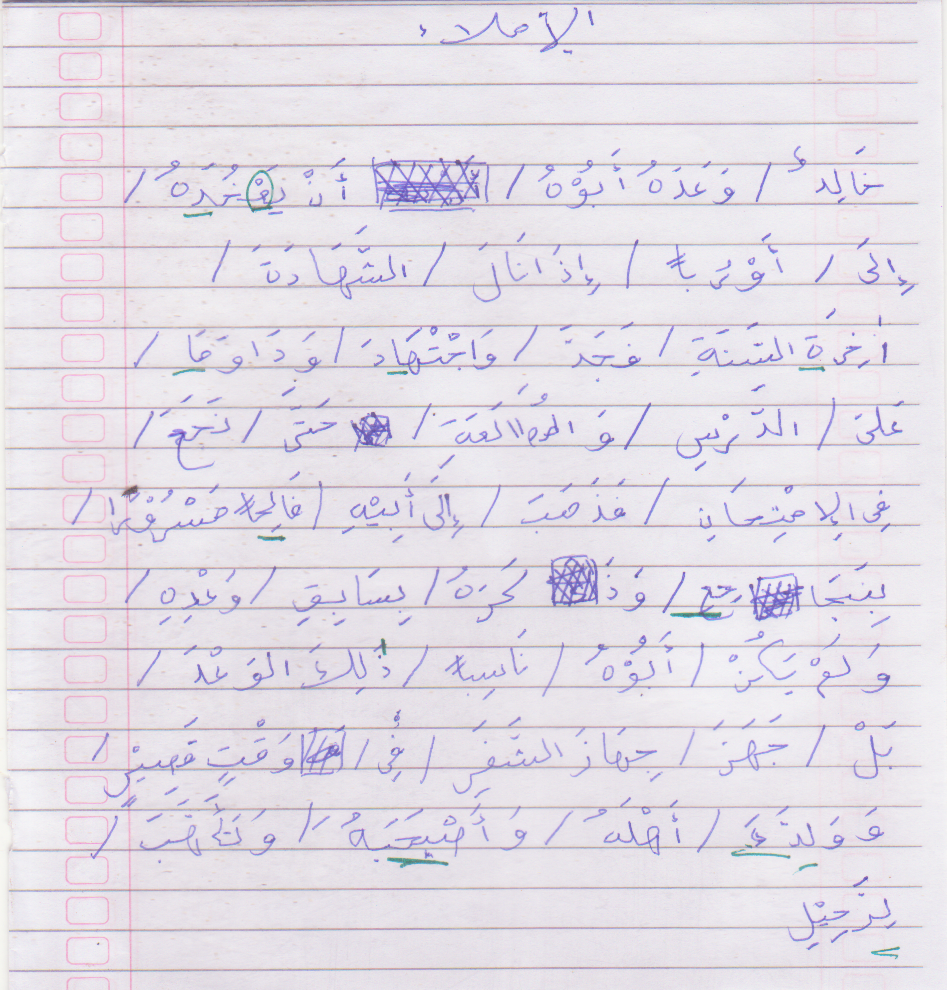 الإملاء
خَالِدٌ / وَعَدَهُ أَبُوْهُ / أَنْ يَقْخُدَهُ /
إِلَى / أَوْرُبا / إِذَانَالَ / الشَّهَادَةَ /
أرخرَةَ السَنَةِ / فَجَدَّ / وَاجْتْهَادَ / وَدَاوَمَا /
عَلىَ / الدَّرْسِ / وَ المُطاالَعَةِ / حَتىَّ / نَجَعَ /
فِى الإِمْتِحَانِ / فَذَهَبَ / إِلَى أَبِيْهِ / فَالِحا مَسْرُوْرًا /
بِنَجَا رجع / وَذَ كَّرَهُ / بِسَابِقِ / وَعْدِهِ /
وَلَمْ يَكُنْ / أَبُوْهُ / نَاسِيا / ذٰلِكَ الوَعْدَ /
بَلْ / جَهَزَ / جِهَازَ السَّفَرِ / فِيْ / وَقْتٍ قَصِيْرٍ /
وَ وَلِدَّعَ / أَهْلَهُ / وَ أَصْبَحَبَهُ / وَتَأَهَّبَ /
لِرَّحِيْلِ